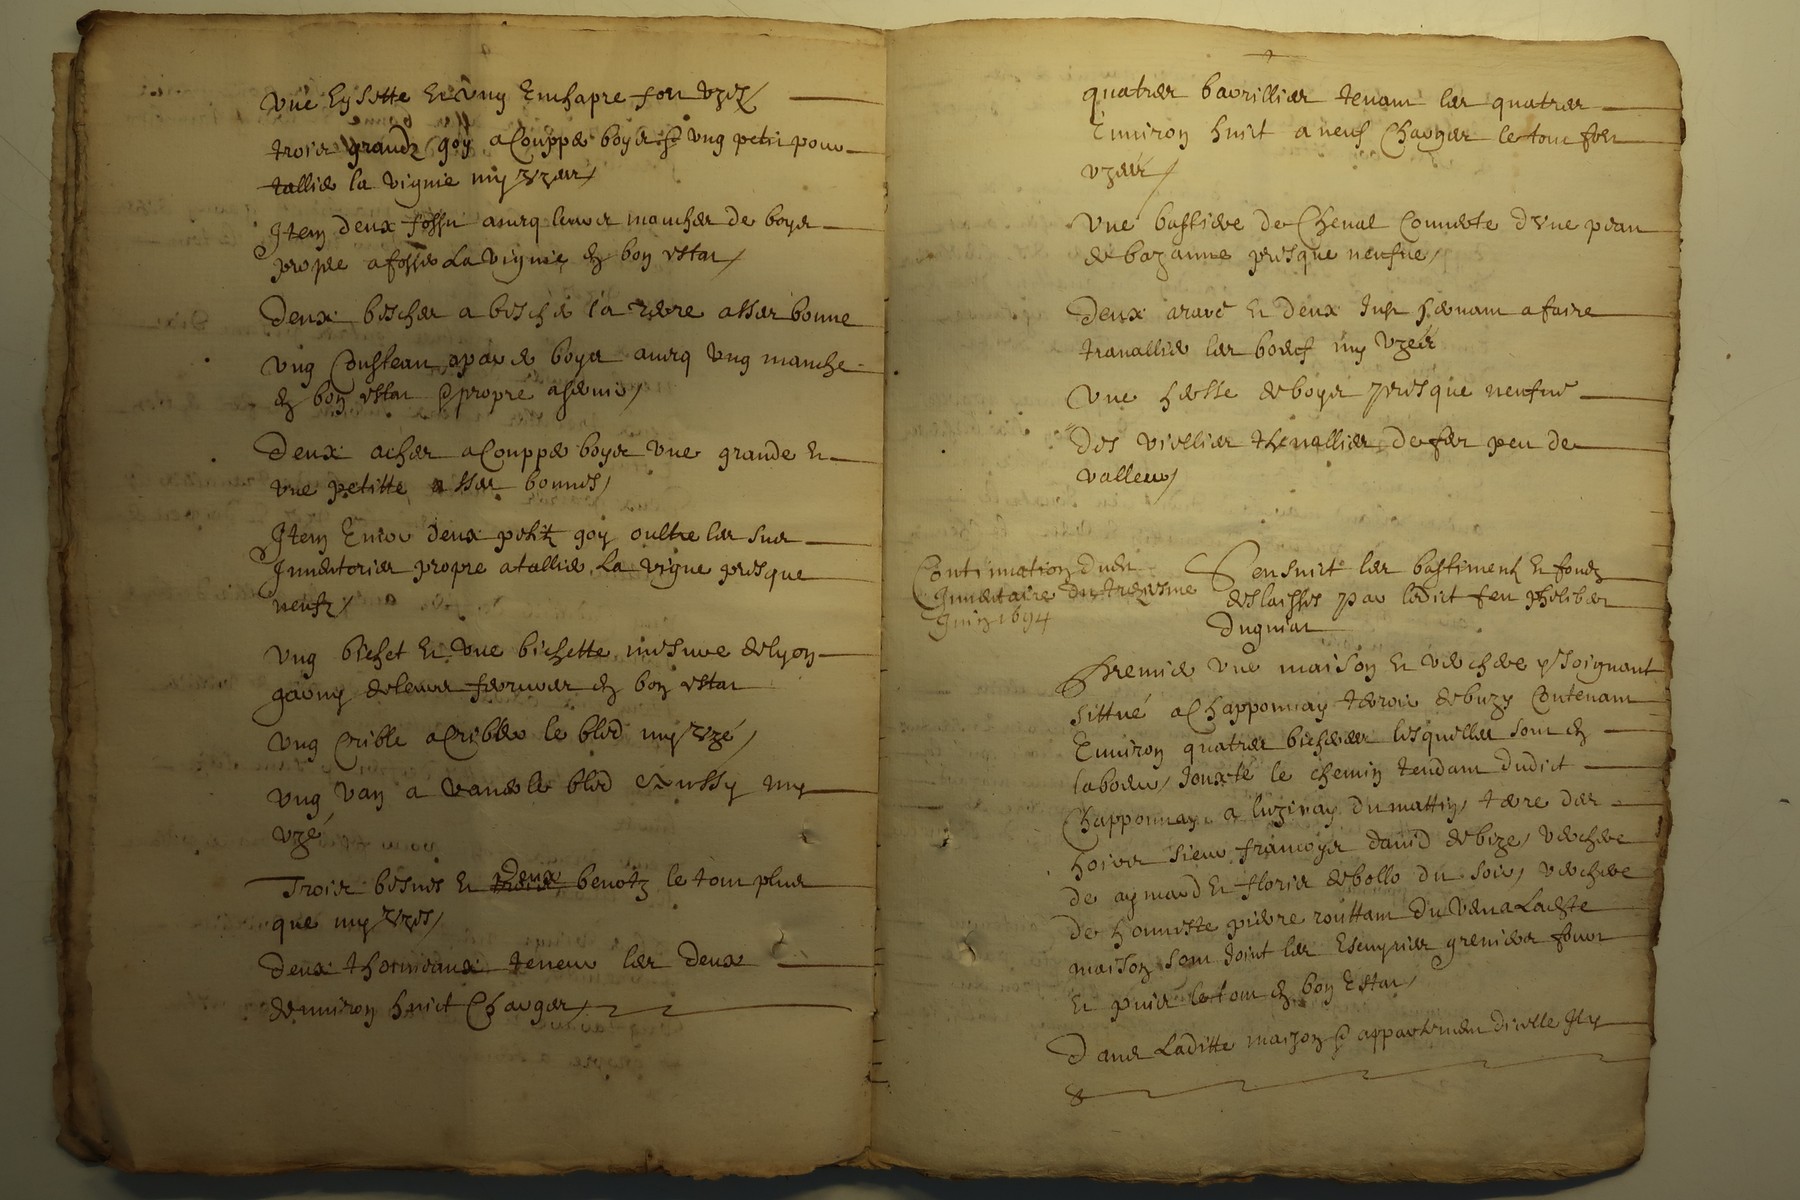 Une hysette et ung Enchapre fort uzés
trois grandz goy a Couppe boys et ung petit pour
tallie la vignie my uzes
Item deux fossu avecq leurs manches de boys
propre a fosse La vignie en bon estat
Deux besches a besche la terre assez bonne
ung Cousteau a boys avecq ung manche
en bon estat et propre aservir
Deux aches a Couppe boys une grande et
une petitte assez bonnes
Item Encor deux petitz goy oultre les sus
Inventories propre a tallie La vigne presque
neufz
ung bichet et une bichette mesure de lyon
garny de leurs ferrures en bon estat
ung Crible a Cribler le bled my uzé
ung van a vane le bled aussy my
uzé
Trois besnes et deux benotz le tout plus
que my uzes
Deux thonneaux teneur les deux
denviron huict Charges
quatres barrillies tenant les quatres
Environ huict a neuf Charges le tout fort
uzés
Une bastiere de Cheval Couverte d'une peau
de bazanne presque neufve
Deux araré et deux Jug servant a faire
travallie les boeuf my uzés
Une de boys presque neufve
Des viellies thenallies de fer peu de
valleur
Continuation dud
Inventaire du treziesme
Juin 1694
S'ensuict les bastiment et fondz
deslaisses par ledict feu philiber
Dugniat
Premie une maison et verchere y Joignant
sittué a Chapponnay terroir de buzy Contenant
Environ quatres bicherees lesquelles sont en
labeur, Jouxte le chemin tendant dudict
Chapponnay a luzinay du mattin, terre des
hoirs sieur francoys david de bize, verchere
de aymard et floris debollo du soir, verchere
de honneste pierre routtam du vent a Laditte
maison sont Joint les Escuyries greniers four
et puis le tout en bon Estat
Dans Laditte maison et appartenen dicelle Il y